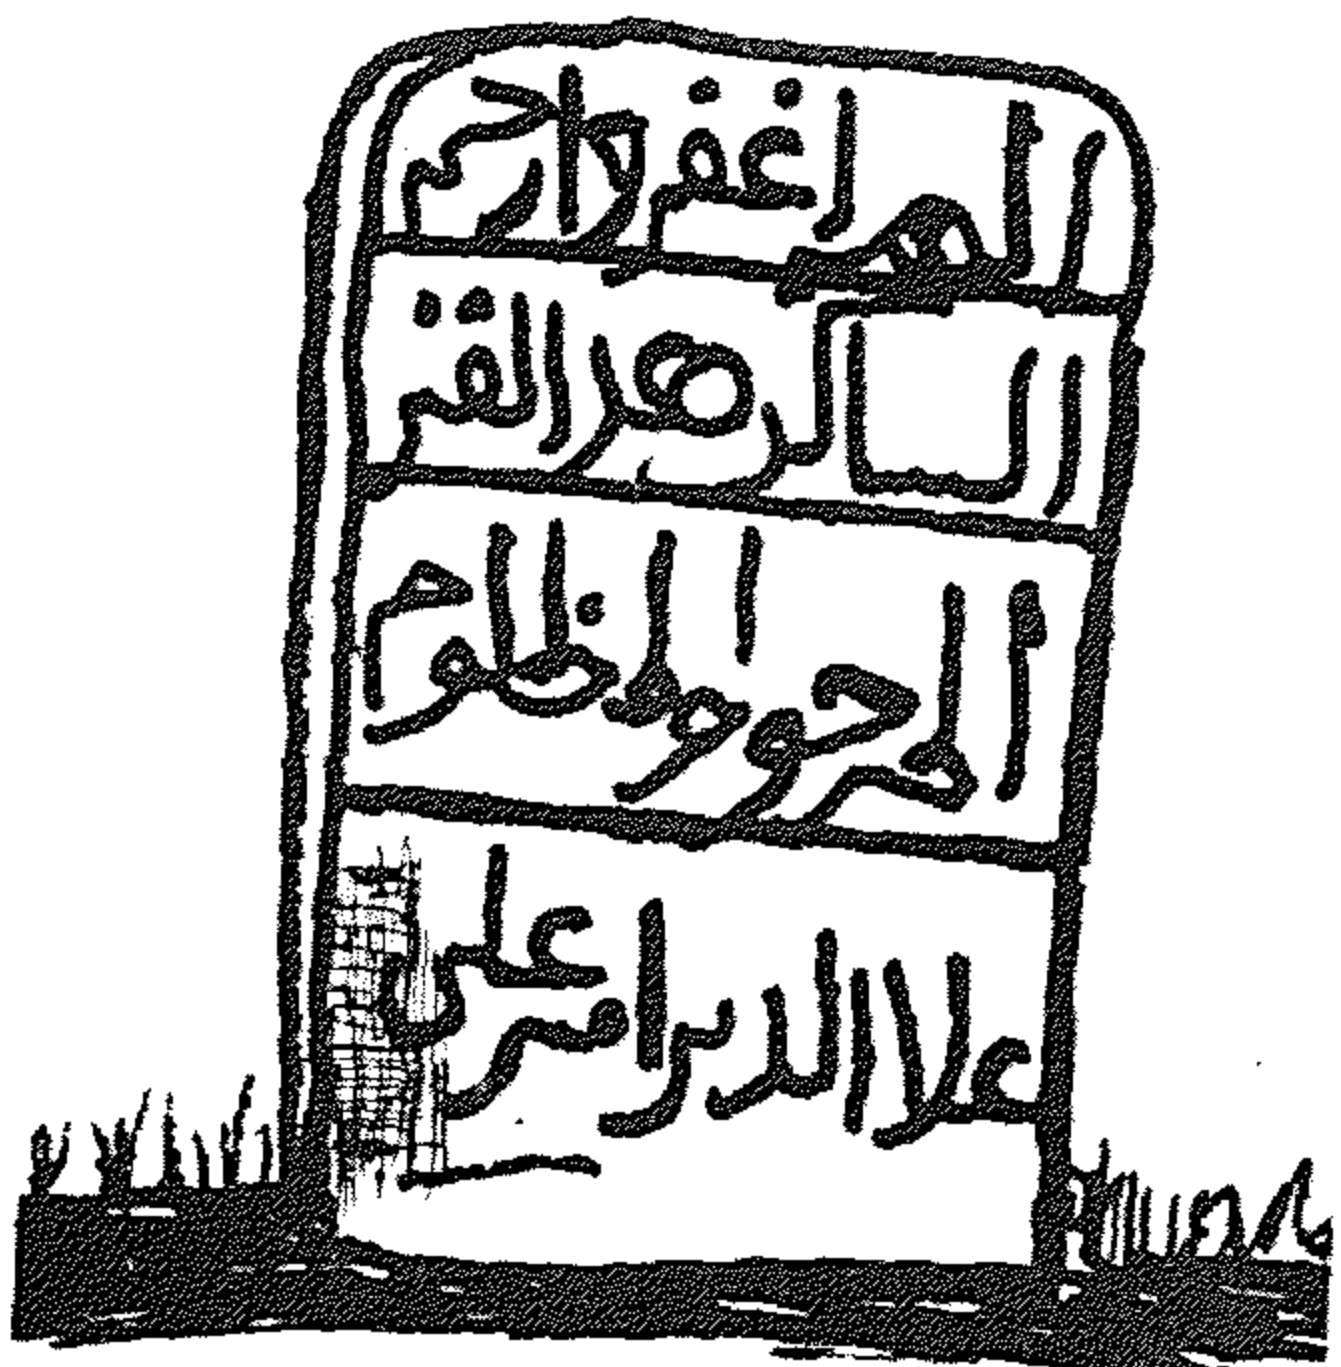 اللهم اغفر وارحم
الساكن هذا القبر
المرحوم المظلوم
علا الدين امير علي